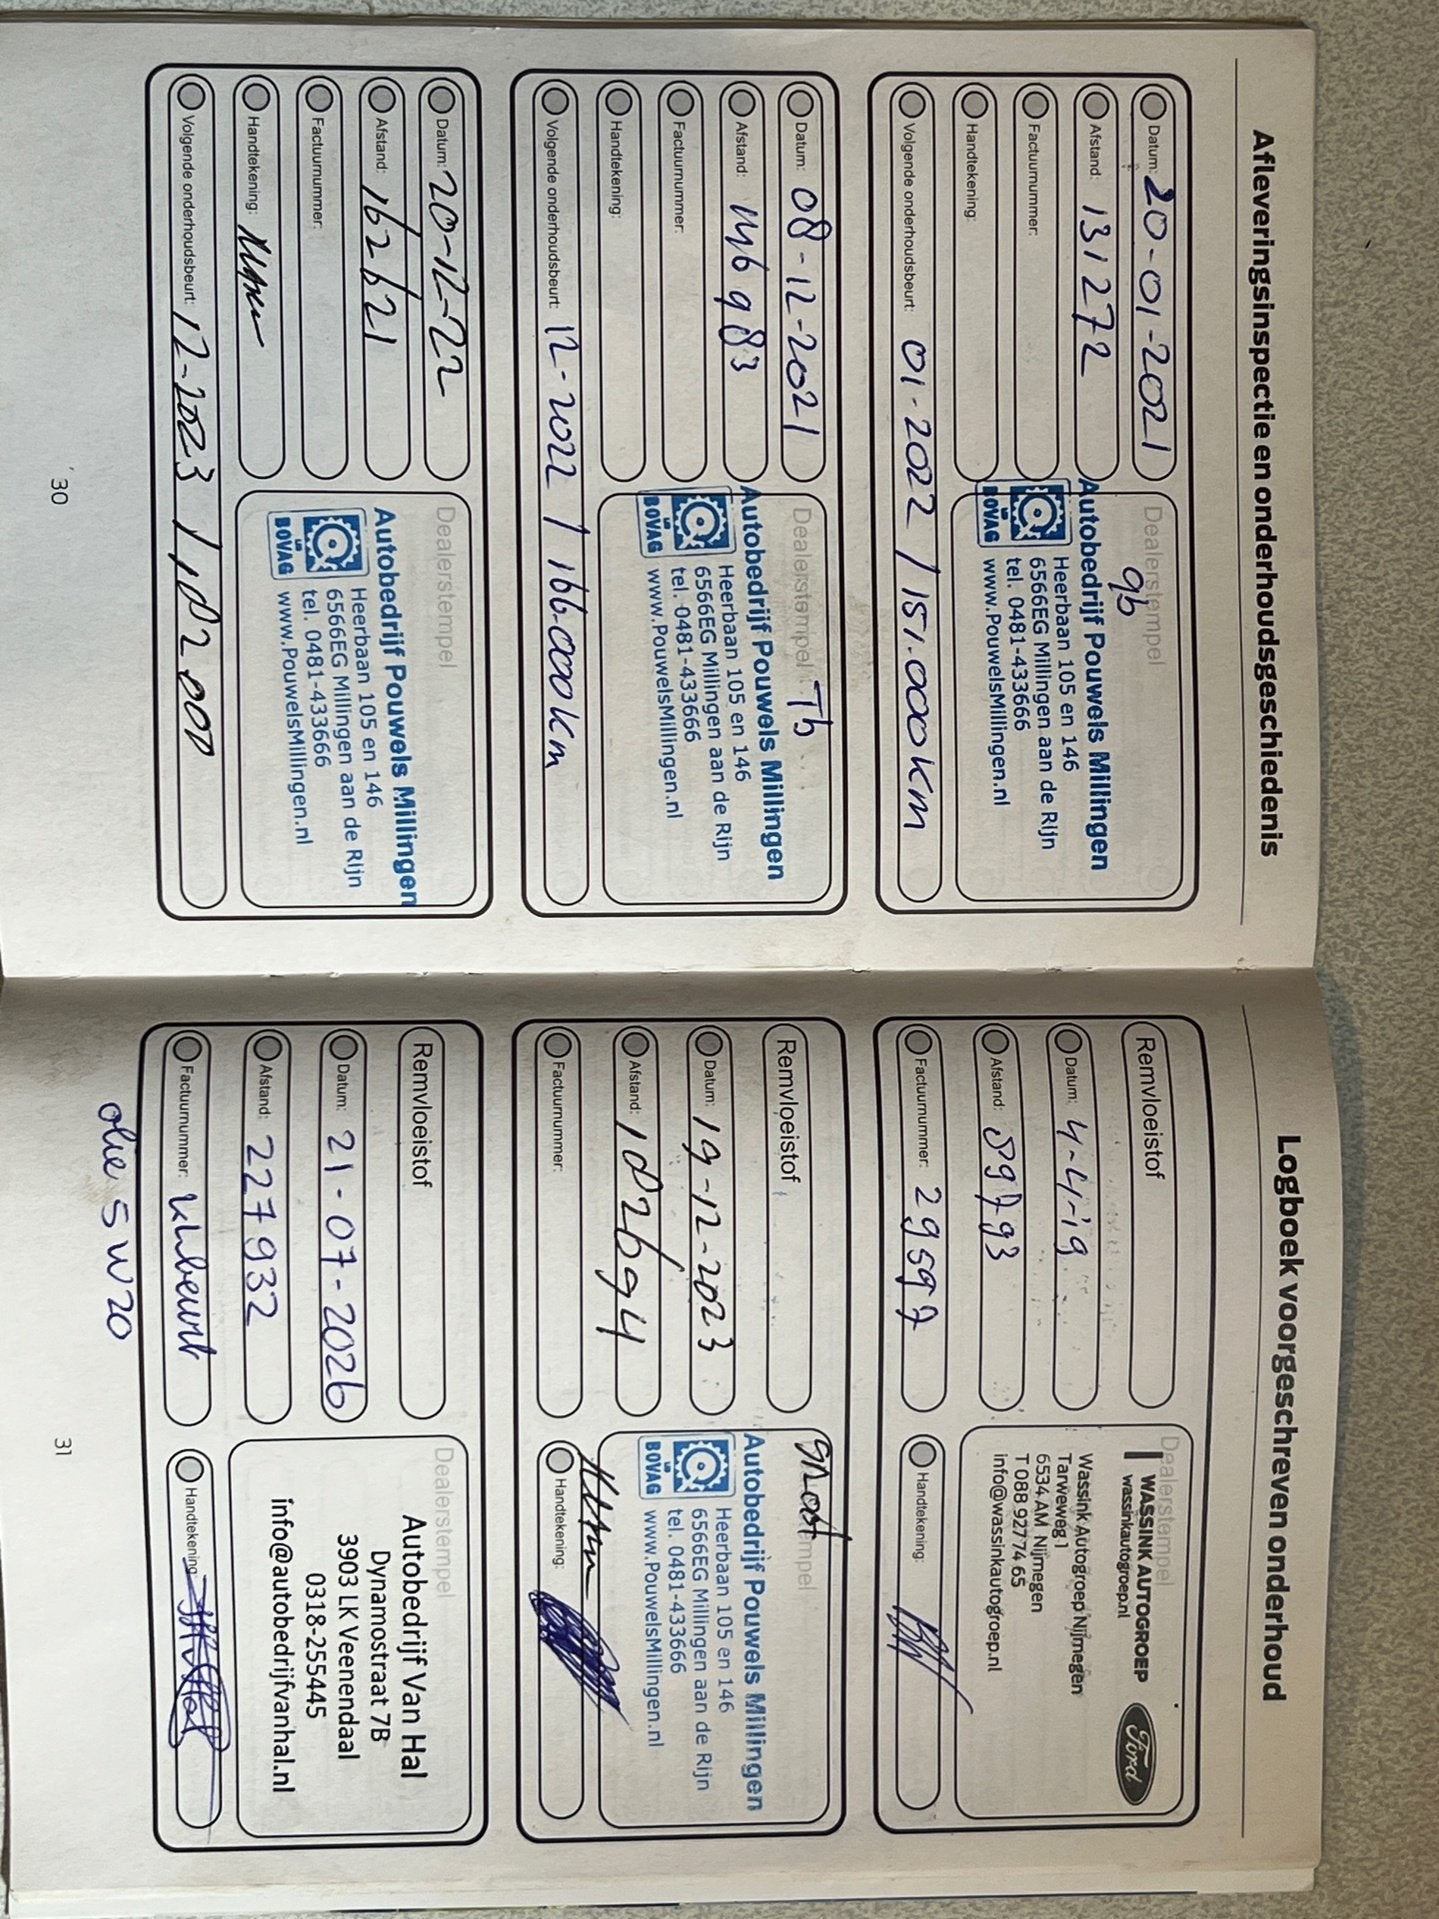 Afleveringsinspectie en onderhoudsgeschiedenis
Datum: 20-01-2021
Afstand: 131272
Factuurnummer:
Handtekening:
Volgende onderhoudsbeurt: 01-2022 / 151.000 km
Dealerstempel
gb
Autobedrijf Pouwels Millingen
Heerbaan 105 en 146
6566EG Millingen aan de Rijn
tel. 0481-433666
www.PouwelsMillingen.nl
BOVAG
Datum: 08-12-2021
Afstand: 146983
Factuurnummer:
Handtekening:
Volgende onderhoudsbeurt: 12-2022 / 166.000 km
Dealerstempel
Autobedrijf Pouwels Millingen
Heerbaan 105 en 146
6566EG Millingen aan de Rijn
tel. 0481-433666
www.PouwelsMillingen.nl
BOVAG
Datum: 20-12-22
Afstand: 162621
Factuurnummer:
Handtekening:
Volgende onderhoudsbeurt: 12-2023 / 182000
Dealerstempel
Autobedrijf Pouwels Millingen
Heerbaan 105 en 146
6566EG Millingen aan de Rijn
tel. 0481-433666
www.PouwelsMillingen.nl
BOVAG
30
Logboek voorgeschreven onderhoud
Remvloeistof
Datum: 4-4-'19
Afstand: 89793
Factuurnummer: 29597
Dealerstempel
WASSINK AUTOGROEP
wassinkautogroep.nl
Ford
Wassink Autogroep Nijmegen
Tarweweg 1
6534 AM Nijmegen
T 088 927 74 65
info@wassinkautogroep.nl
Handtekening:
Remvloeistof
Datum: 19-12-2023
Afstand: 182694
Factuurnummer:
groot
Autobedrijf Pouwels Millingen
Heerbaan 105 en 146
6566EG Millingen aan de Rijn
tel. 0481-433666
www.PouwelsMillingen.nl
BOVAG
Handtekening:
Remvloeistof
Datum: 21-07-2026
Afstand: 227932
Factuurnummer: kl beurt
Dealerstempel
Autobedrijf Van Hal
Dynamostraat 7B
3903 LK Veenendaal
0318-255445
info@autobedrijfvanhal.nl
Handtekening:
olie 5W20
31